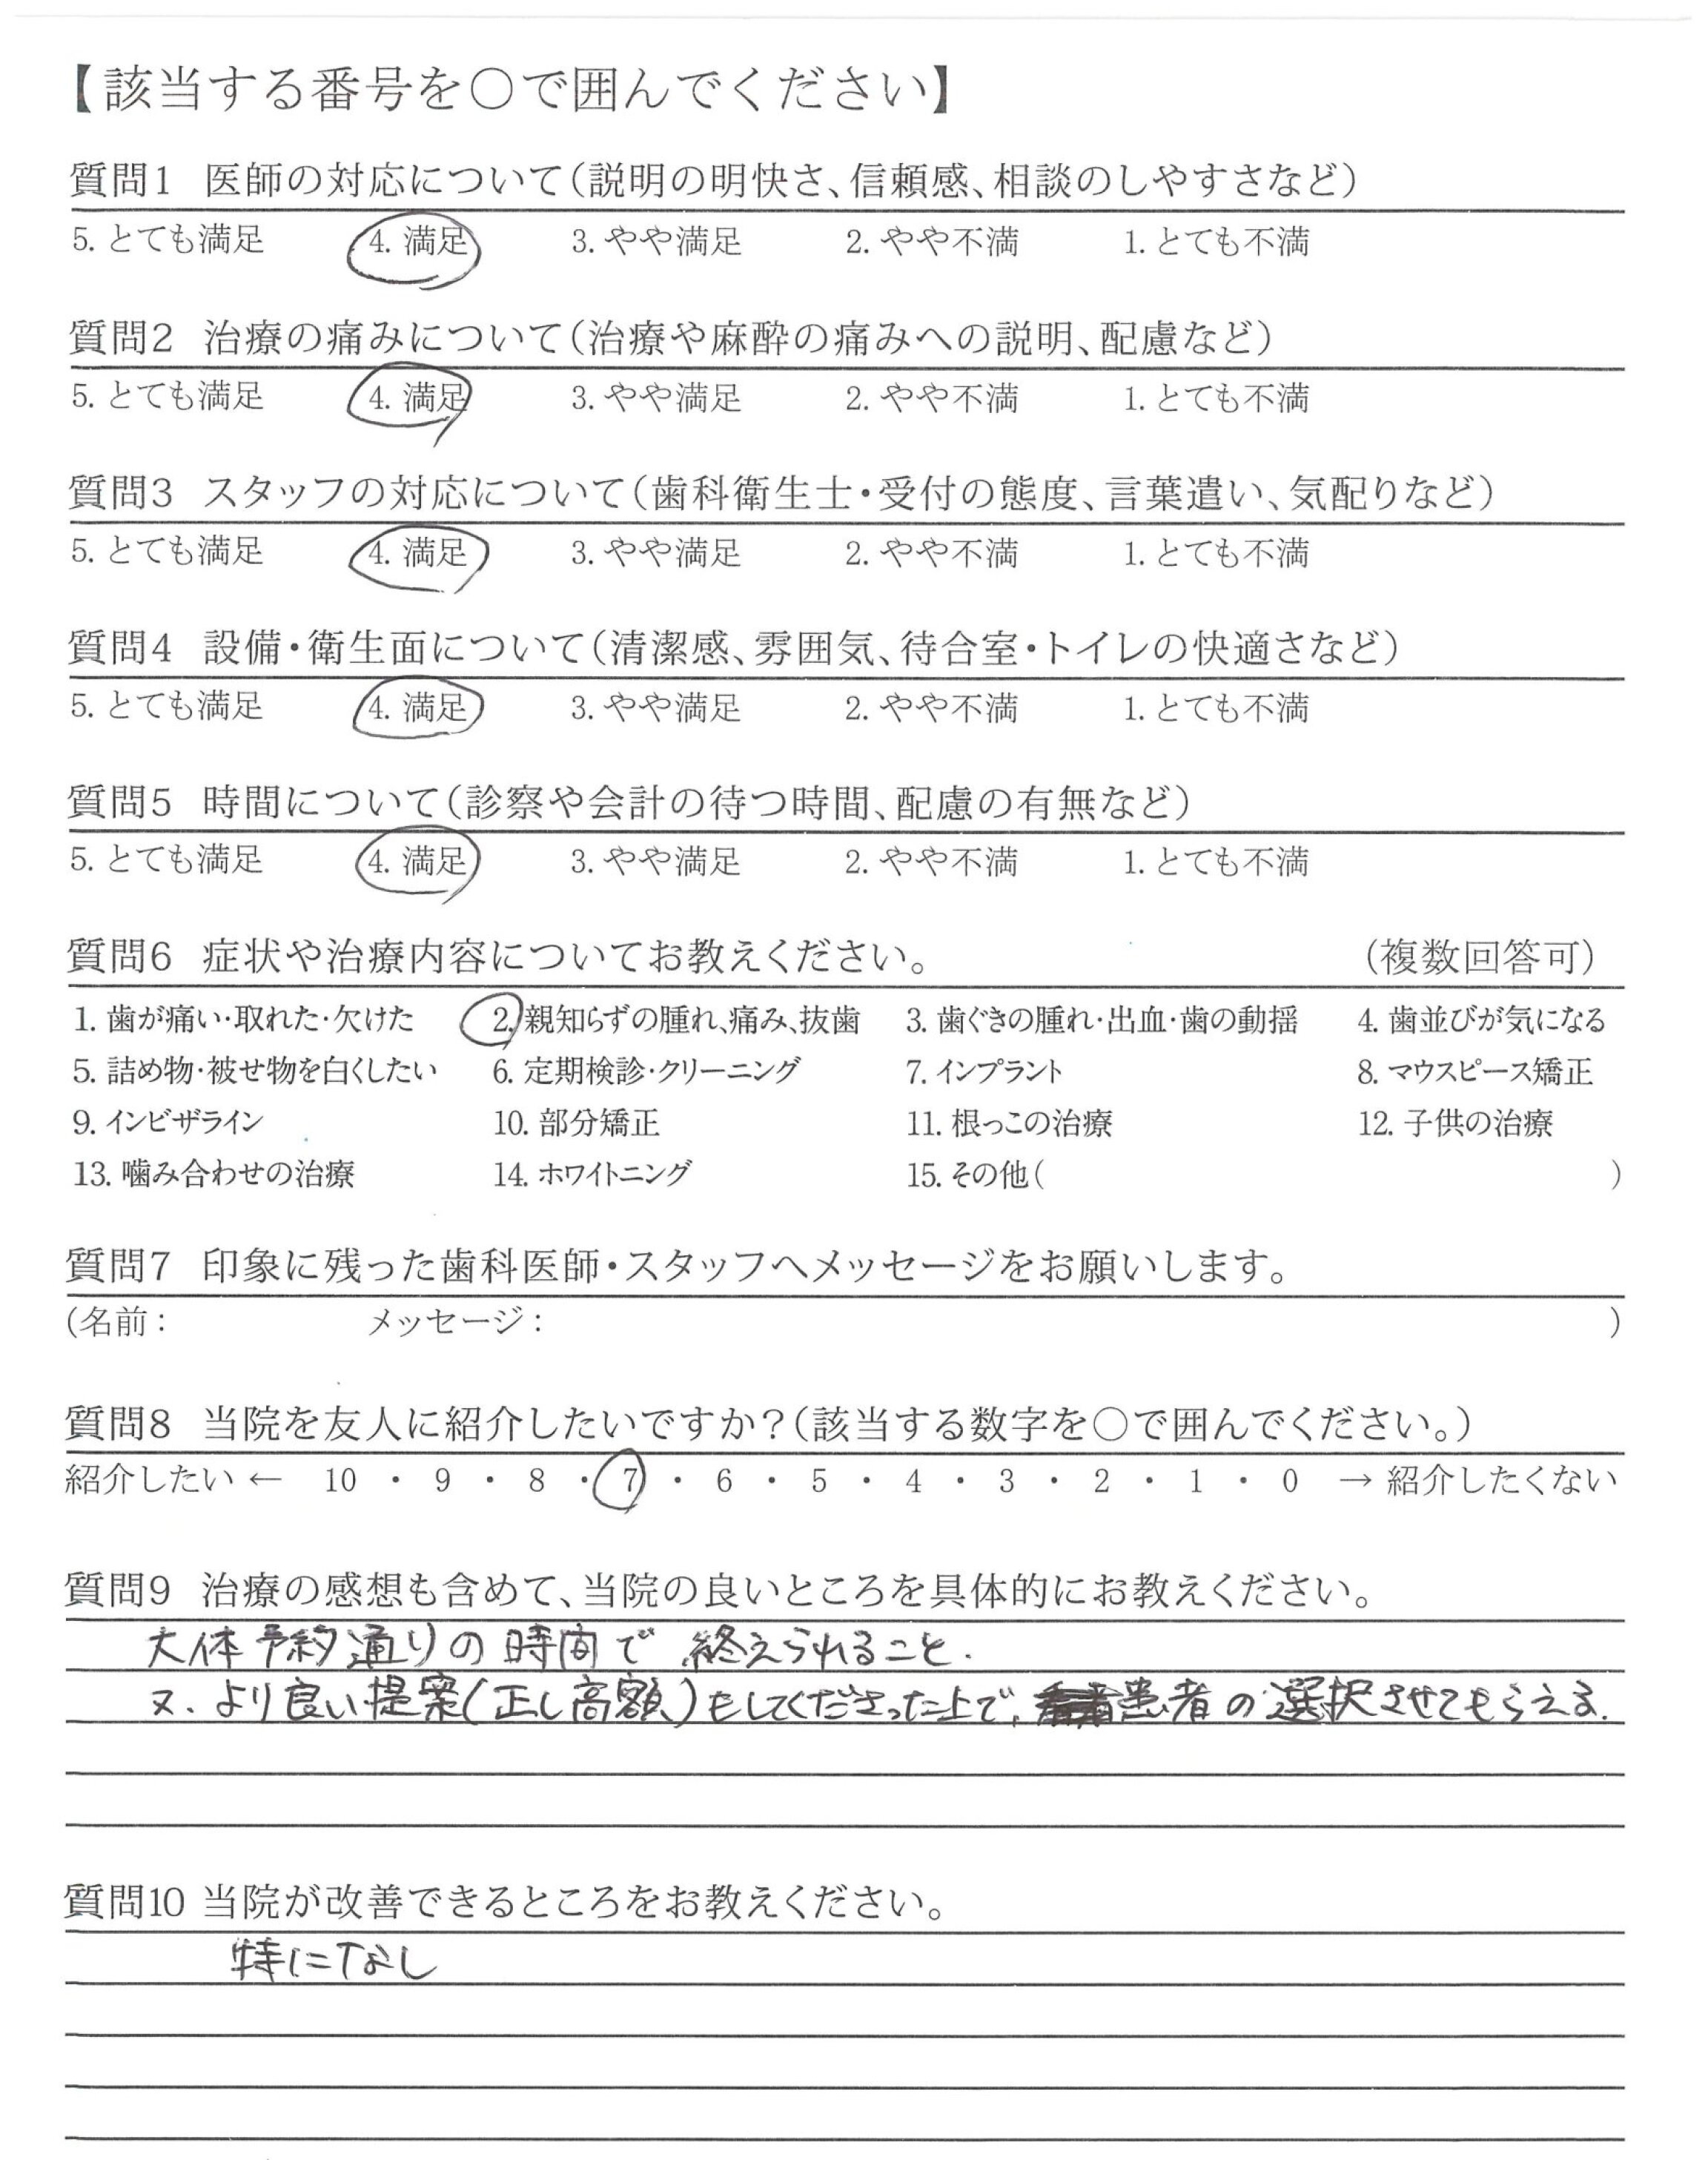 【該当する番号を○で囲んでください】
質問1 医師の対応について(説明の明快さ、信頼感、相談のしやすさなど)
5. とても満足 4. 満足 3. やや満足 2. やや不満 1. とても不満
質問2 治療の痛みについて(治療や麻酔の痛みへの説明、配慮など)
5. とても満足 4. 満足 3. やや満足 2. やや不満 1. とても不満
質問3 スタッフの対応について(歯科衛生士・受付の態度、言葉遣い、気配りなど)
5. とても満足 4. 満足 3. やや満足 2. やや不満 1. とても不満
質問4 設備・衛生面について(清潔感、雰囲気、待合室・トイレの快適さなど)
5. とても満足 4. 満足 3. やや満足 2. やや不満 1. とても不満
質問5 時間について(診察や会計の待つ時間、配慮の有無など)
5. とても満足 4. 満足 3. やや満足 2. やや不満 1. とても不満
質問6 症状や治療内容についてお教えください。 (複数回答可)
1. 歯が痛い・取れた・欠けた 2. 親知らずの腫れ、痛み、抜歯 3. 歯ぐきの腫れ・出血・歯の動揺 4. 歯並びが気になる
5. 詰め物・被せ物を白くしたい 6. 定期検診・クリーニング 7. インプラント 8. マウスピース矯正
9. インビザライン 10. 部分矯正 11. 根っこの治療 12. 子供の治療
13. 噛み合わせの治療 14. ホワイトニング 15. その他( )
質問7 印象に残った歯科医師・スタッフへメッセージをお願いします。
(名前: メッセージ: )
質問8 当院を友人に紹介したいですか?(該当する数字を○で囲んでください。)
紹介したい ← 10 ・ 9 ・ 8 ・ 7 ・ 6 ・ 5 ・ 4 ・ 3 ・ 2 ・ 1 ・ 0 → 紹介したくない
質問9 治療の感想も含めて、当院の良いところを具体的にお教えください。
大体予約通りの時間で終えられること.
又、より良い提案(正し高額)もしてくださった上で、患者の選択させてもらえる.
質問10 当院が改善できるところをお教えください。
特になし